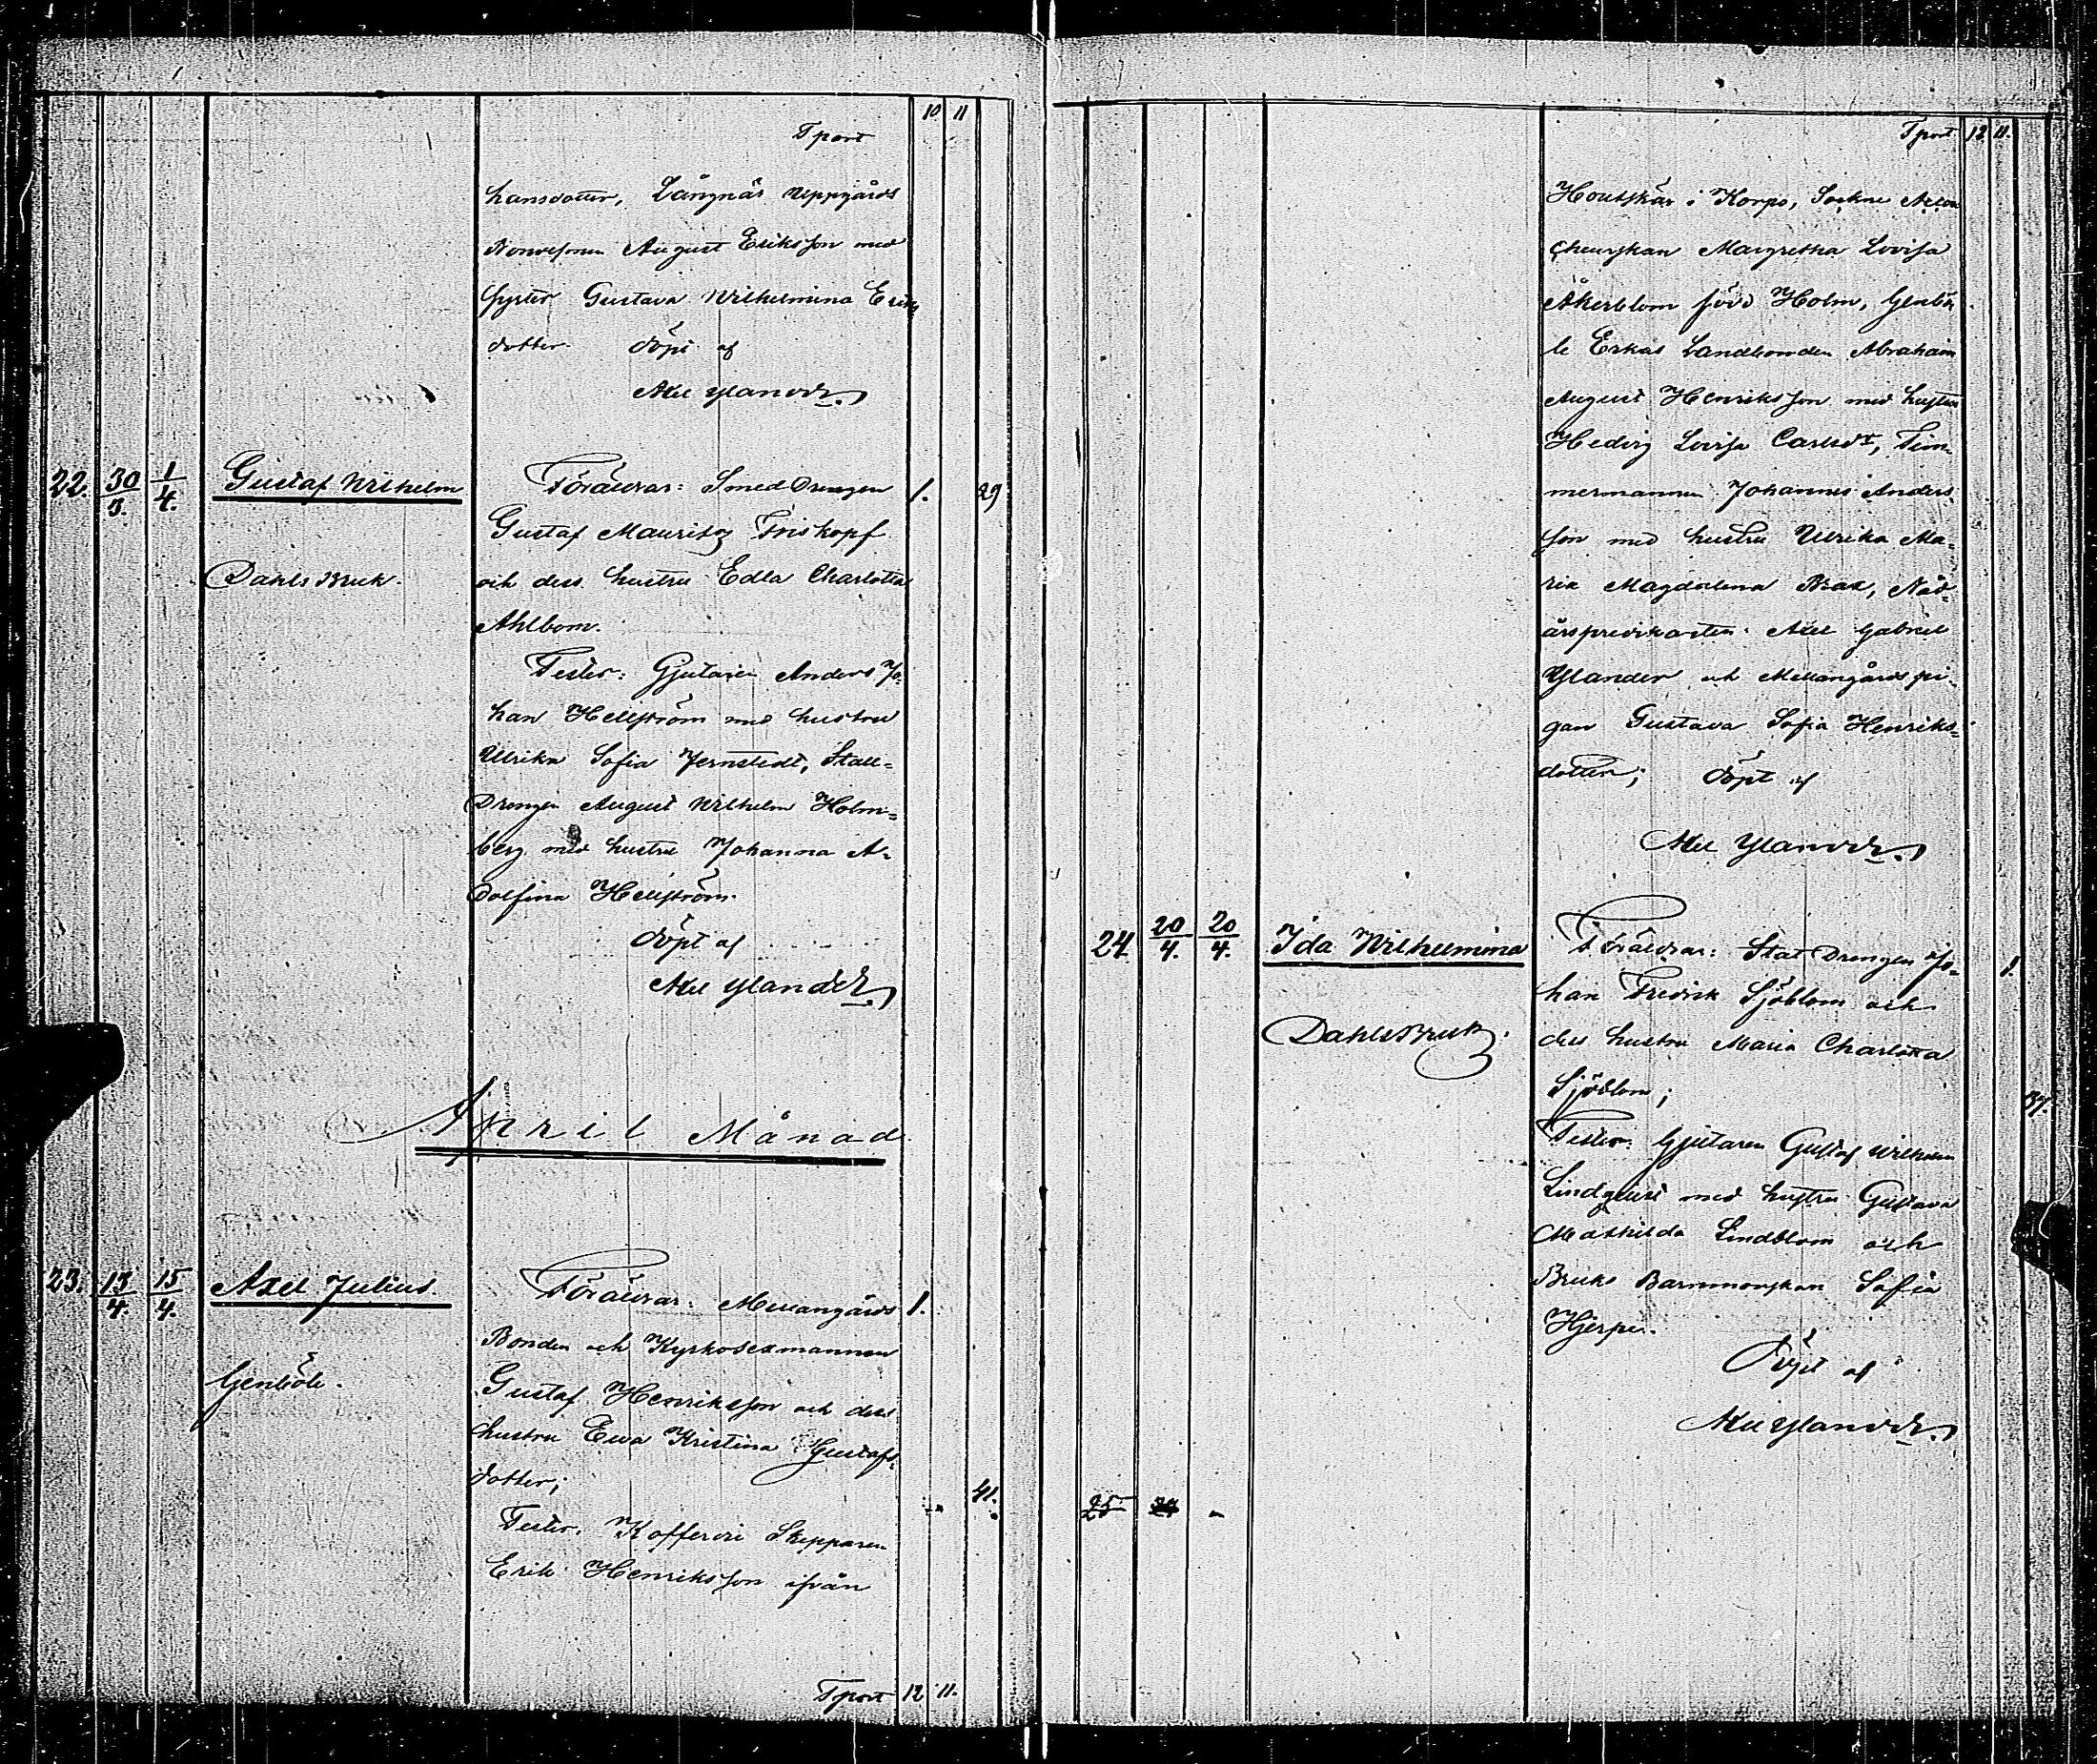 10 11
Tport
hansdotter, Långnäs Uppgårds
Bondesonen August Eriksson med
syster Gustava Wilhelmina Eriks
dotter. döpt af
Axel Ylander.
22. 30/3. 1/4. Gustaf Wilhelm Föräldrar: Smed Drengen 1. 29
Gustaf Mauritz Friskopf
Dahls Bruk. och dess hustru Edla Charlotta
Ahlbom.
Testes: Gjutaren Anders Jo-
han Hellström med hustru
Ulrika Sofia Jernstedt, Stall-
Drengen August Wilhelm Holm=
berg med hustru Johanna A-
dolfina Hellström.
döpt af
Axel Ylander.
April Månad.
23. 13/4. 15/4. Axel Julius. Föräldrar: Mellangårds 1.
Bonden och Kyrkosexmannen
Genböle. Gustaf Henriksson och dess
hustru Ewa Kristina Gustafs-
dotter; 41.
Testes. Kofferdi Skepparen
Erik Henriksson ifrån
Tport 12 11.
Tport 12 11.
Houtskär i Korpo, Sockne
Margretha Lovisa
Åkerblom född Holm, Genbö
le Eskas Landbonden Abraham
August Henriksson med hustru
Hedvig Lovisa Carlsdr, Tim-
mermannen Johannes Anders
son med hustru Ulrika Ma=
ria Magdalena Brax, Nåd=
årspredikanten Axel Gabriel
Ylander och Mellangårds pi-
gan Gustava Sofia Henriks=
dotter; döpt af
Axel Ylander.
24. 20/4. 20/4. Ida Wilhelmina Föräldrar: Stat Drengen Jo= 1.
han Fredrik Sjöblom och
Dahls Bruk. dess hustru Maria Charlotta
Sjöblom; 37.
Testes. Gjutaren Gustaf Wilhelm
Lindquist med hustru Gustava
Mathilda Lindblom och
Bruks Barnmorskan Sofia
Hjerpe.
Döpt af
Axel Ylander.
25